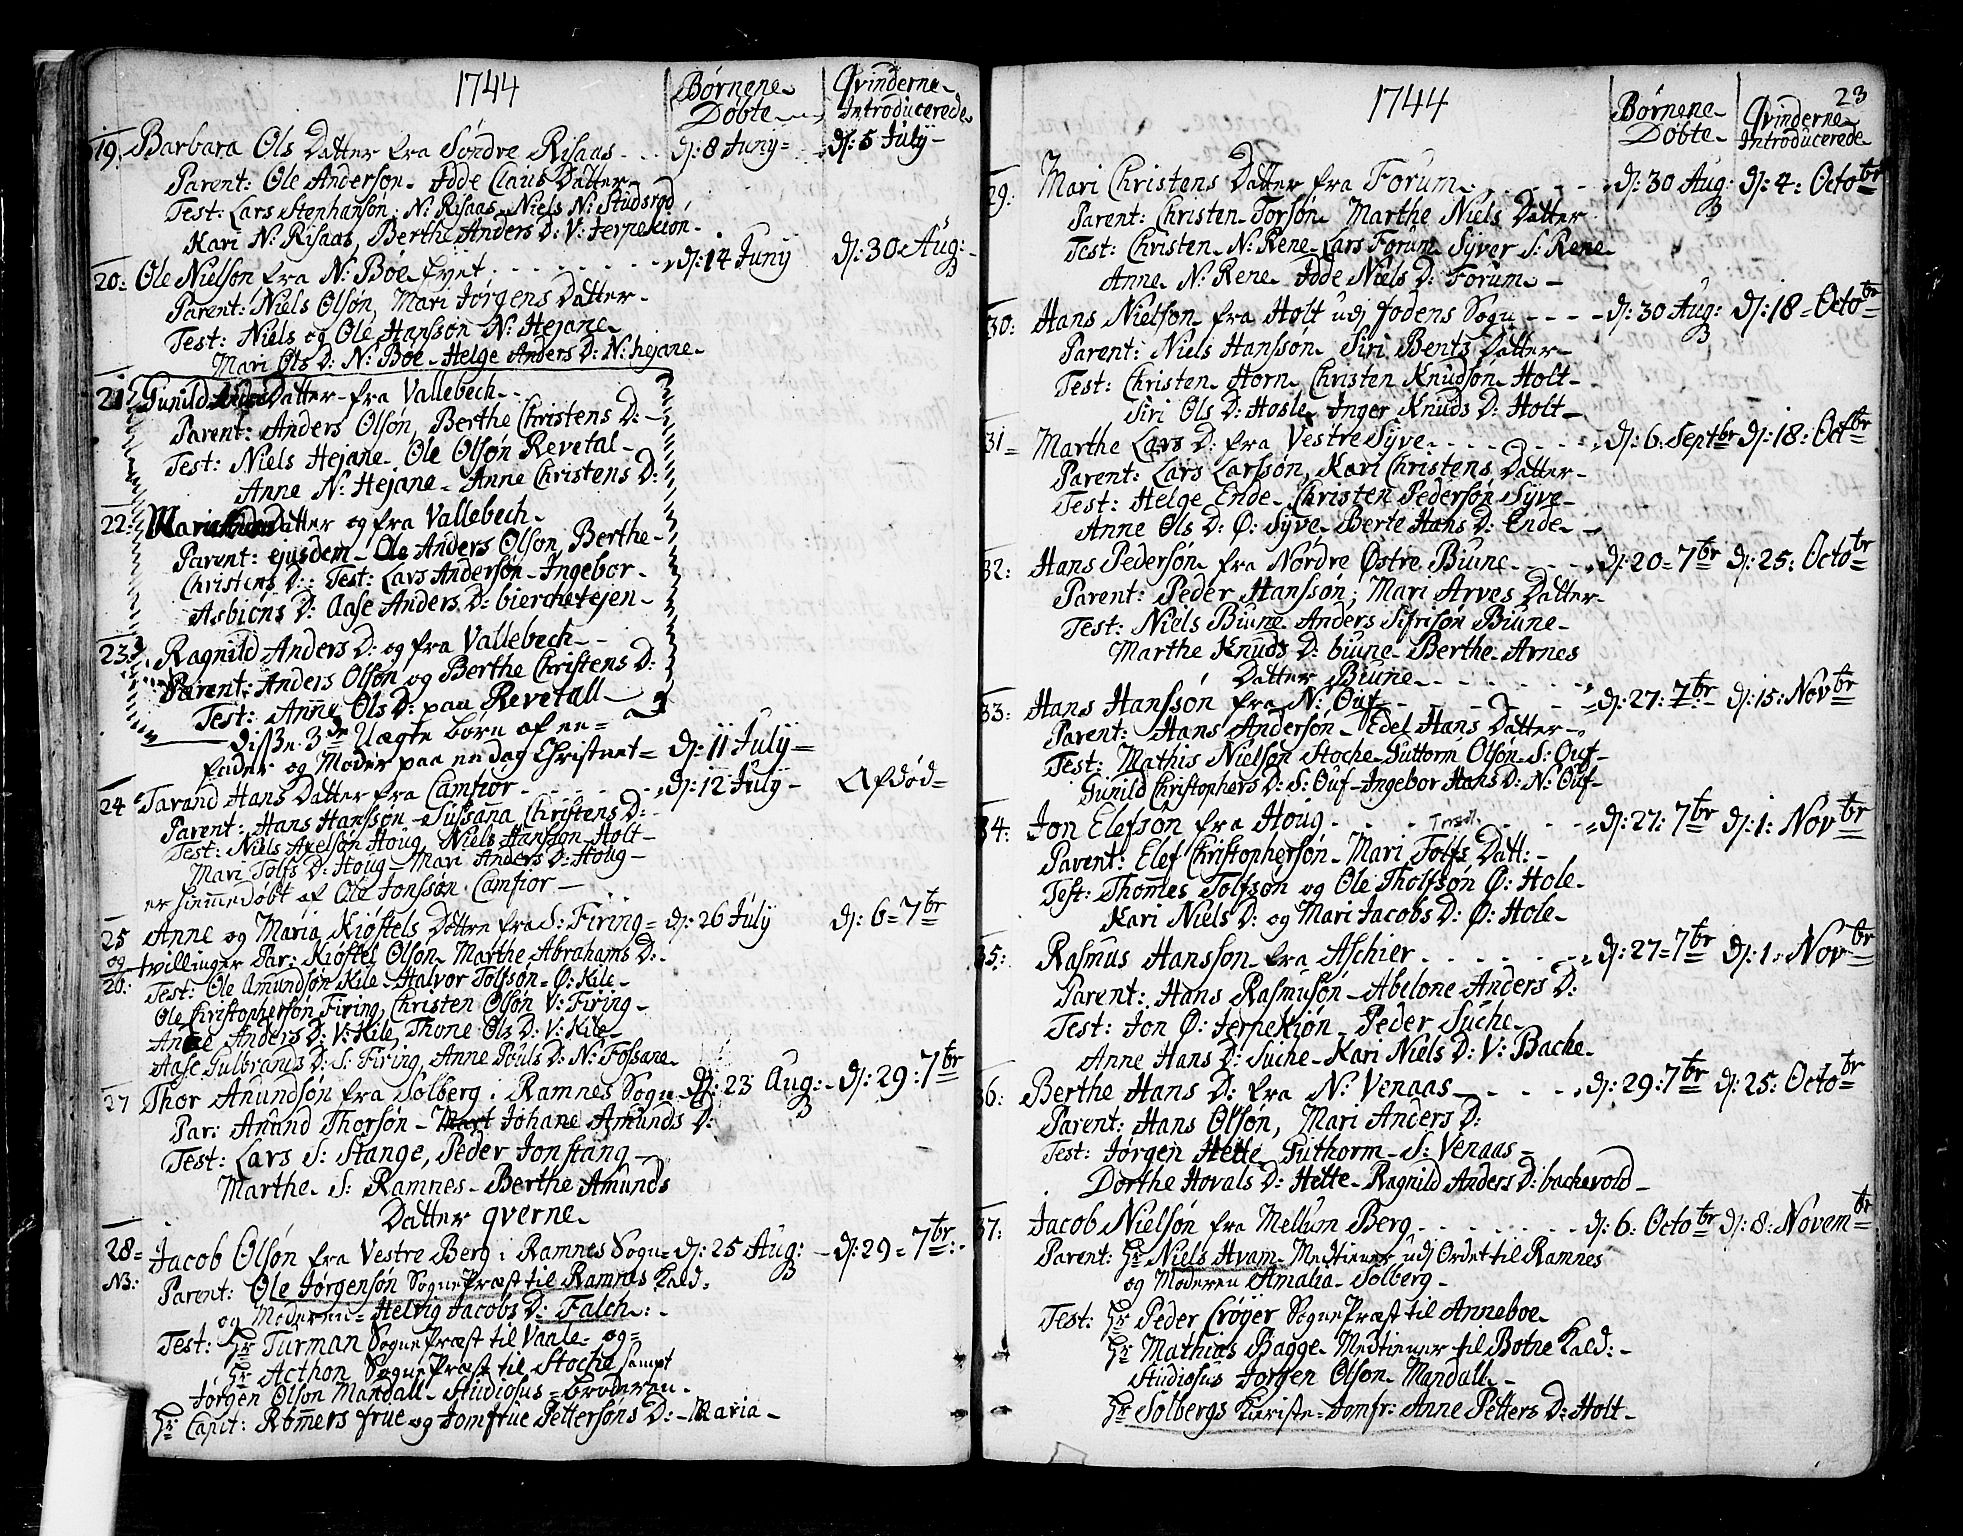 1744
Børnene Døbte
Qvinderne Introducerede
19. Barbara Ols Datter fra Søndre Risaas - d: 8 Junÿ - d: 5 Julÿ -
Parent: Ole Andersøn - Idde Claus Datter -
Test: Lars Stephansøn, N: Risaas - Niels N: Studsrød
Kari N: Risaas, Berthe Anders D: V: Jernekiøn -
20: Ole Nielsøn fra N: Bøe - d: 14 Junÿ d: 30 Aug:
Parent: Niels Olsøn, Mari Jørgens Datter -
Test: Niels og Ole Hanssøn N: Hejane -
Mari Ols D: N: Bøe - Helge Anders D: N: hejane -
21: Gunild Datter fra Vallebech -
Parent: Anders Olsøn, Berthe Christens D: -
Test: Niels Hejane - Ole Olsøn Revetal -
Anne N: Hejane - Anne Christens D:
22: Mari Datter og fra Vallebech -
Parent: ejusdem - Ole Anders Olsøn, Berthe -
Christens D: Test: Lars Andersøn - Ingebor -
Asbiøns D: Aase Anders D: bierchetejen -
23: Ragnild Anders D: og fra Vallebech -
Parent: Anders Olsøn og Berthe Christens D:
Test: Anne Ols D: paa Revetall -
diſſe 3de Uægte børn af en
fader og Moder paa en dag Christnet = d: 11 Julÿ =
24 Tarand Hans Datter fra Camfiør - d: 12 Julÿ - Afdød =
Parent: Hans Hanssøn - Sussana Christens D:
Test: Niels Axelsøn Houg, Niels Hanssøn Holt -
Mari Tolfs D: Houg - Mari Anders D: Houg -
er hiemmedøbt af Ole Jonssøn Camfior -
25 Anne og Maria Kiøstels Døttre fra S: Firing = d: 26 Julÿ d: 6 = 7br
og tvillinger Par: Kiøstel Olsøn - Marthe Abrahams D: -
26: Test: Ole Amundsøn Kile - Halvor Tolfsøn Ø: Kile -
Ole Christophersøn Firing, Christen Olsøn V: Firing -
Anne Anders D: V: Kile, Thone Ols D: V: Kile -
Aase Gulbrands D: S: Firing, Anne Pouls D: N: Fossane -
27 Thor Anundsøn fra Solberg i Ramnes Sogn - d: 23 Aug: - d: 29: 7br
Par: Anund Thorsøn - Mart Johane Amunds D:
Test: Lars S: Stange, Peder Jonstang -
Marthe S: Ramnes - Berthe Amunds
Datter qverne -
28 = Jacob Olsøn fra Vestre Berg i Ramnes Sogn = d: 25 Aug: - d: 29 = 7br: -
NB: Parent: Ole Jørgensøn SognePræst til Ramnes Kald.
og Moderen = Helvig Jacobs D: Falch: -
Test: Hr Turman SognePræst til Vaale - og =
Hr Acthon SognePræst til Stoche sampt
Jørgen Olsøn Mandall - Studiosus = broderen -
Hr Capit: Rømers frue og Jomfrue Pettersøns D: - Maria -
1744
23
Børnene Døbte -
Qvinderne Introducerede -
29: Mari Christens Datter fra Forum - d: 30 Aug: d: 4: Octobr
Parent: Christen Torsøn - Marthe Niels Datter
Test: Christen N: Rene - Lars Forum - Syver S: Rene -
Anne N: Rene - Idde Niels D: Forum -
30: Hans Nielsøn fra Holt udj fodens Sogn - - - d: 30 Aug: d: 18 = Octobr
Parent: Niels Hansson - Siri Bents Datter -
Test: Christen Horn - Christen Knudsøn Holt -
Siri Ols D: Hosle - Inger Knuds D: Holt -
31 = Marthe Lars D: fra Vestre Syve - d: 6: Septbr d: 18: Octbr
Parent: Lars Larssøn, Kari Christens Datter -
Test: Helge Ende - Christen Pedersøn Syve -
Anne Ols D: Ø: Syve - Berte Hans D: Ende -
32: Hans Pedersøn fra Nordre Østre Biune - d: 20 = 7br d: 25: Octobr
Parent: Peder Hanssøn; Mari Arves Datter -
Test: Niels Biune - Anders Sifrisøn Biune -
Marthe Knuds D: biune - Berthe Arnes
Datter Biune -
33: Hans Hanssøn fra N: Ouf - d: 27: 7br - d: 15: Novbr
Parent: Hans Andersøn - Edel Hans Datter -
Test: Mathis Nielsøn Stoche - Guttorm Olsøn S: Ouf -
Gunild Christophers D: S: Ouf - Ingebor Hans D: N: Ouf -
34: Jon Elefsøn fra Houg - d: 27: 7br d: 1: Novbr
Parent: Elef Christophersøn - Mari Tolfs Datt: -
Test: Thomes Tolfsøn og Ole Tholfsøn Ø: Hole -
Kari Niels D: og Mari Jacobs D: Ø: Hole -
35: Rasmus Hansson fra Aschier - d: 27 = 7br d: 1: Novbr
Parent: Hans Rasmusøn - Abelone Anders D:
Test: Jon Ø: Jernekiøn - Peder Suche -
Anne Hans D: Suche - Kari Niels D: V: Bache -
36: Berthe Hans D: fra N: Venaas - d: 29: 7br d: 25: Octobr
Parent: Hans Olsøn, Mari Anders D:
Test: Jørgen Hette Guthorm - S: Venaas =
Dorthe Hovals D: Hette - Ragnild Anders D: bachevold -
37: Jacob Nielsøn fra Mellum Berg - d: 6: Octobr d: 8: Novembr
Parent: Hr Niels Hvam - Medtiener udj Ordet til Ramnes
og Moderen Amalia - Solberg -
Test: Hr Peder Crøger SognePræst til Anneboe -
Hr Mathias Bagge - Medtiener til Botne Kald: -
Studiosus Jorgen Olson - Mandall -
Hr Solbergs Kieriste - Jomfr: Anne Petters D: Holt -